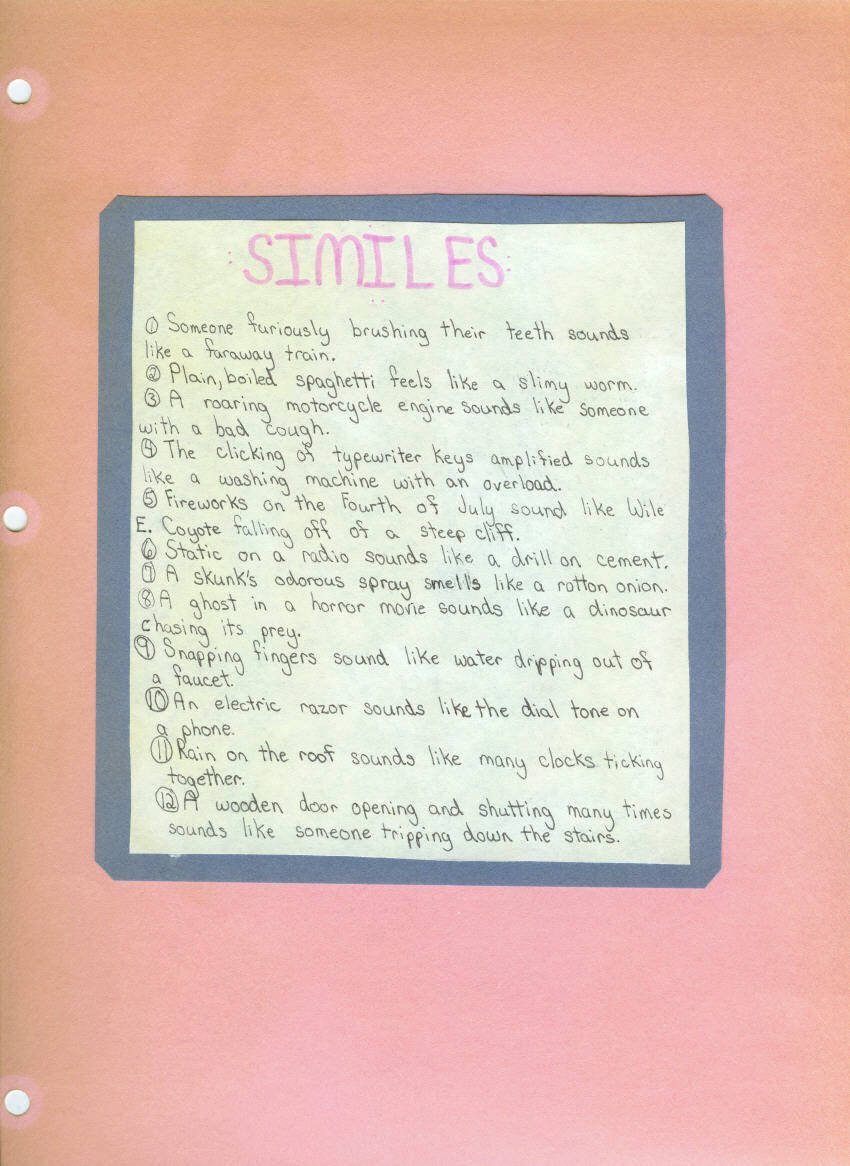 SIMILES
① Someone furiously brushing their teeth sounds
like a faraway train.
② Plain, boiled spaghetti feels like a slimy worm.
③ A roaring motorcycle engine sounds like someone
with a bad cough.
④ The clicking of typewriter keys amplified sounds
like a washing machine with an overload.
⑤ Fireworks on the Fourth of July sound like Wile
E. Coyote falling off of a steep cliff.
⑥ Static on a radio sounds like a drill on cement.
⑦ A skunk's odorous spray smells like a rotton onion.
⑧ A ghost in a horror movie sounds like a dinosaur
chasing its prey.
⑨ Snapping fingers sound like water dripping out of
a faucet.
⑩ An electric razor sounds like the dial tone on
a phone.
⑪ Rain on the roof sounds like many clocks ticking
together.
⑫ A wooden door opening and shutting many times
sounds like someone tripping down the stairs.